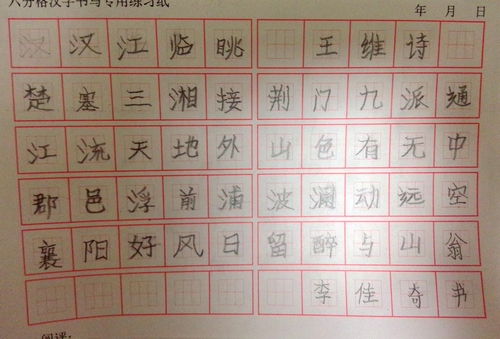 六分格汉字书写专用练习纸 年 月 日
汉汉江临眺 王维诗
楚塞三湘接 荆门九派通
江流天地外 山色有无中
郡邑浮前浦 波澜动远空
襄阳好风日 留醉与山翁
李佳奇书
点评: